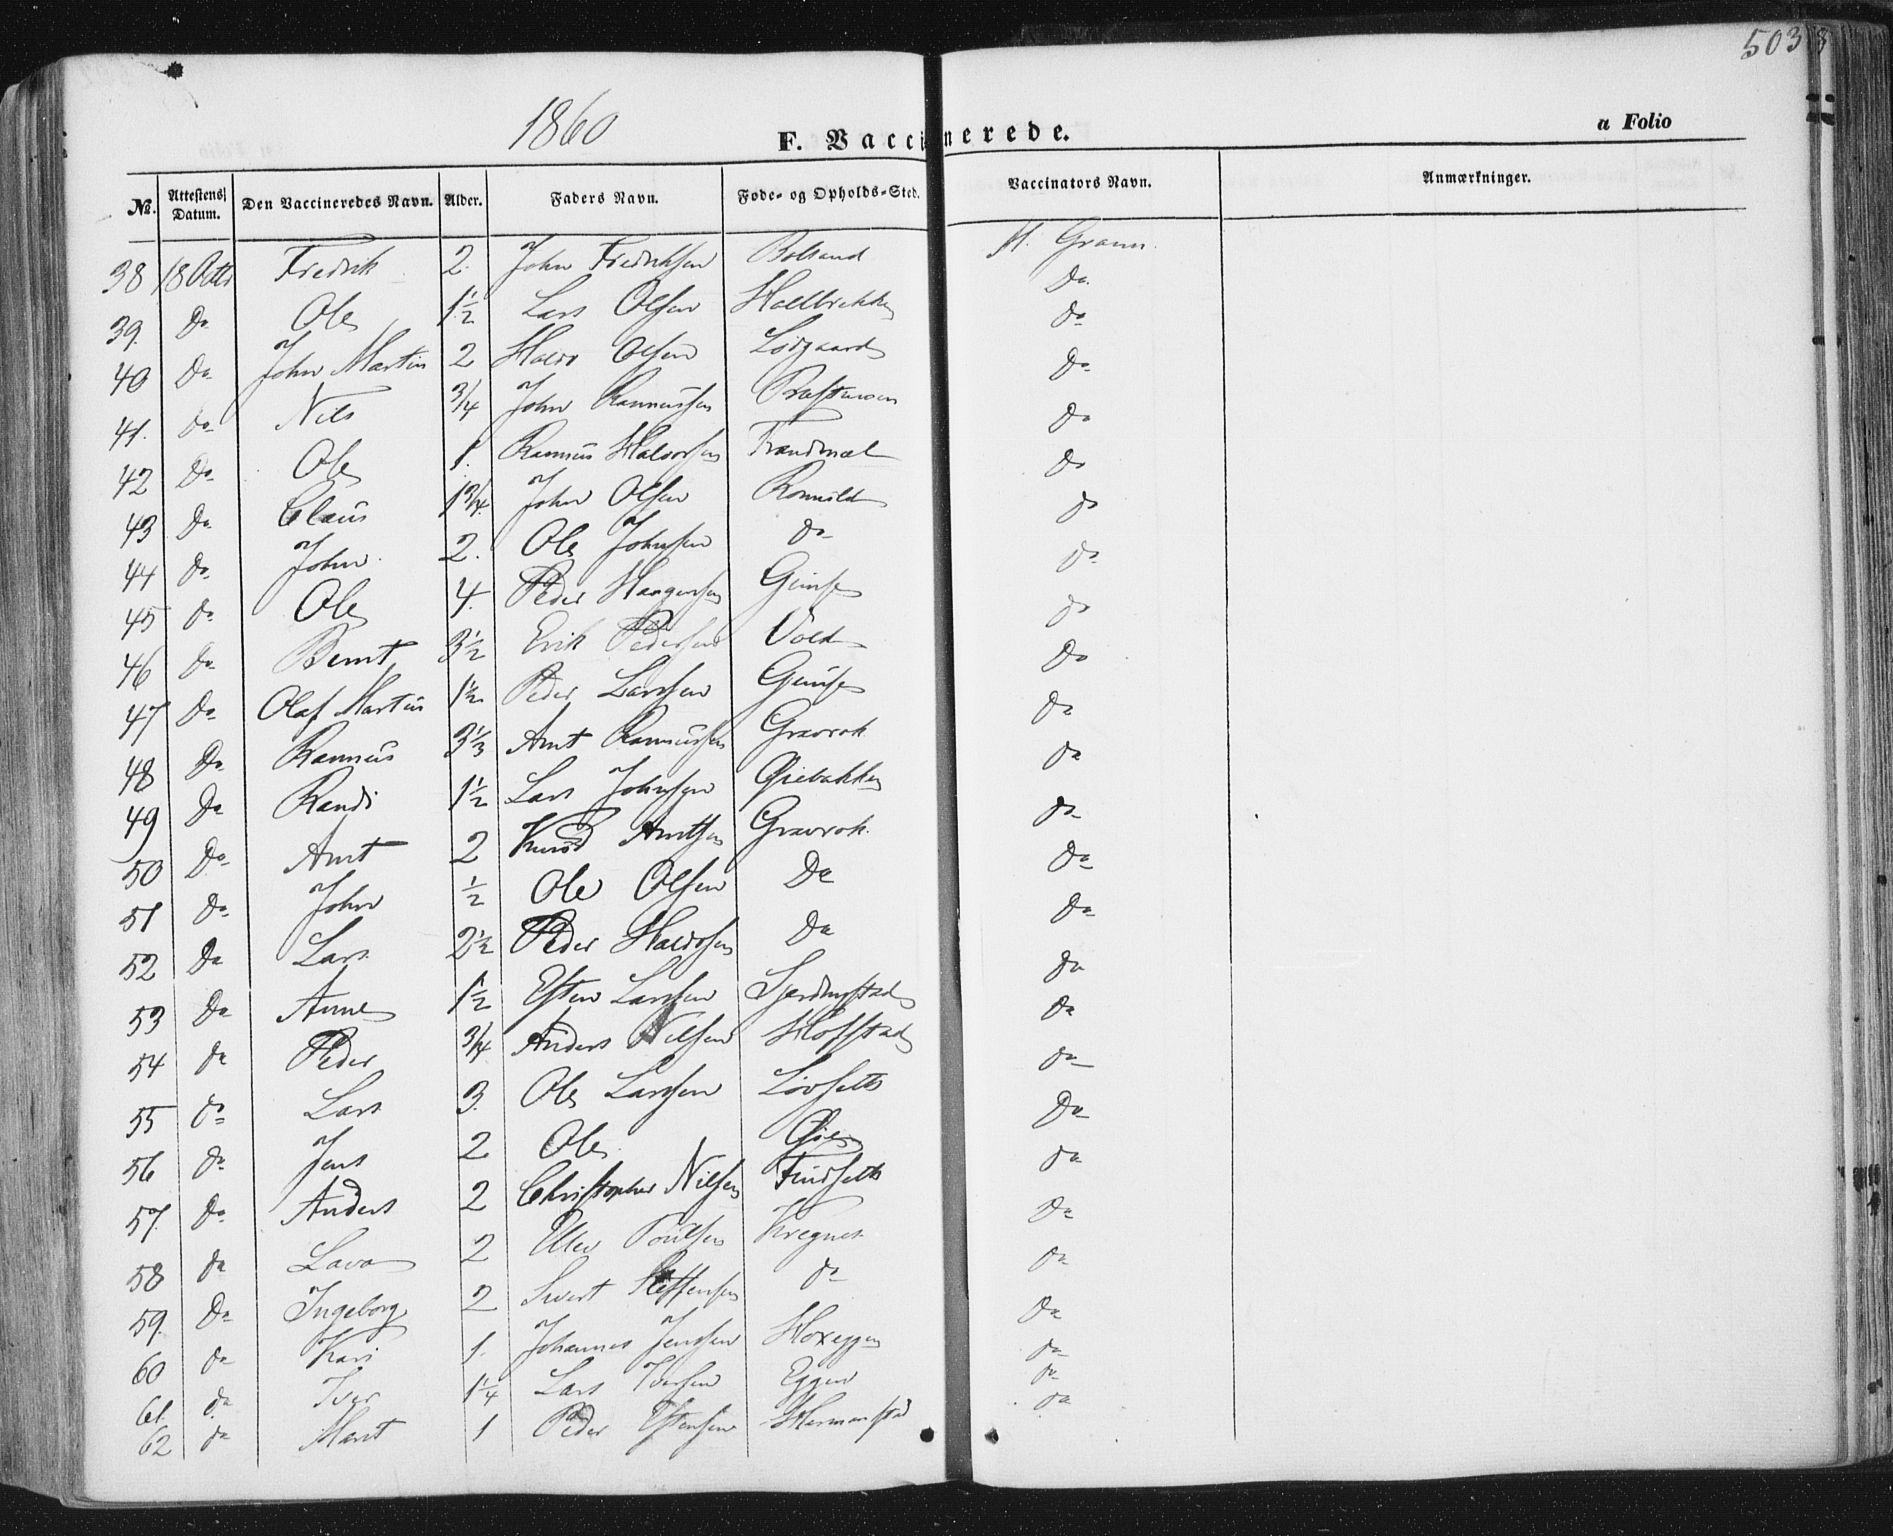 503
1860
F. Vaccinerede.
a Folio
№. Attestens Datum. Den Vaccineredes Navn. Alder. Faders Navn. Føde- og Opholds-Sted. Vaccinators Navn. Anmærkninger.
38 18 Octbr Fredrik 2. John Fredriksen Bolland M. Gram.
39. Do Ole 1½ Lars Olsen Do.
40 Do John Martin 2 Haldo Olsen Lødgaard Do
41. Do Nils 3/4 John Rasmussen Do
42 Do Ole 1. Rasmus Halvorsen Do
43 Do Claus 1 3/4. John Olsen Do
44 Do John 2. Ole Johnsen Do Do
45 Do Ole 4. Peder Haagensen Gimse Do
46 Do Bernt 3½ Erik Pedersen Vold Do
47 Do Olaf Martin 1½ Peder Larssen Gimse Do
48 Do Rasmus 3⅓ Arnt Rasmussen Gravrok Da
49 Da Randi 1½ Lars Johnsen Øiebakken Da
50 Do Arnt 2 Knud Arntsen Gravrok. Do
51 Do John ½ Ole Olsen Da Da
52 Da Lars 2½ Peder Haldosen Da Da
53 Da Anne 1½ Esten Larssen Da
54 Da Peder 3/4 Anders Nilsen Hofstad Da
55 Do Lars 3. Ole Larssen Løvseth Da
56 Da Jens 2 Ole Øie Da
57. Do Anders 2 Christopher Nilsen Findseth Da
58 Da Lava 2 Ellev Poulsen Kregnes Da
59. Do Ingeborg 2 Sivert Steffensen Do Da
60 Da Kari 1. Johannes Jenssen Hoxeggen Da
61. Da Iver 1¼ Lars Iversen Eggen Da
62 Da Marit 1 Peder Estensen Hermanstad Da